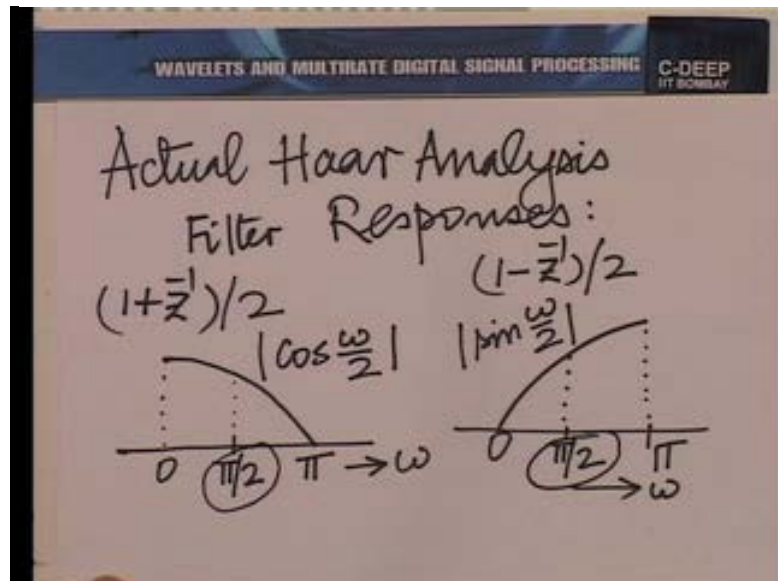 WAVELETS AND MULTIRATE DIGITAL SIGNAL PROCESSING
C-DEEP
IIT BOMBAY
Actual Haar Analysis
Filter Responses:
(1+z⁻¹)/2
(1-z⁻¹)/2
|cos ω/2|
|sin ω/2|
0 π/2 π → ω
0 π/2 π
→ ω